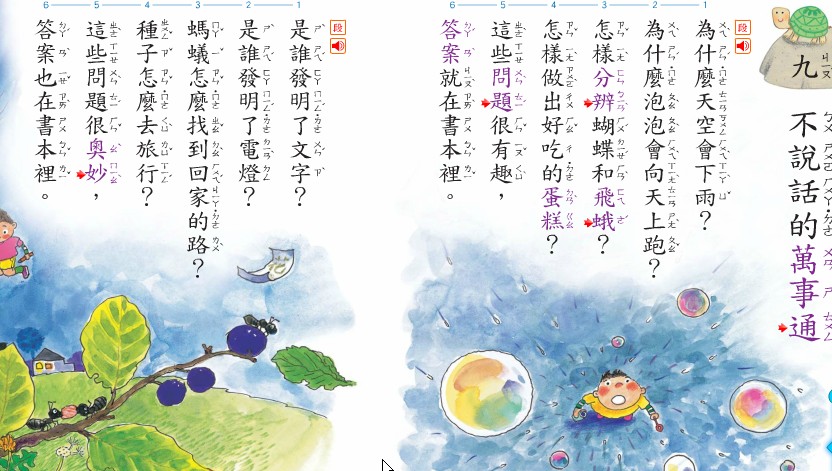 九
不說話的萬事通
1 2 3 4 5 6
段
為什麼天空會下雨?
為什麼泡泡會向天上跑?
怎樣分辨蝴蝶和飛蛾?
怎樣做出好吃的蛋糕?
這些問題很有趣,
答案就在書本裡。
1 2 3 4 5 6
段
是誰發明了文字?
是誰發明了電燈?
螞蟻怎麼找到回家的路?
種子怎麼去旅行?
這些問題很奧妙,
答案也在書本裡。